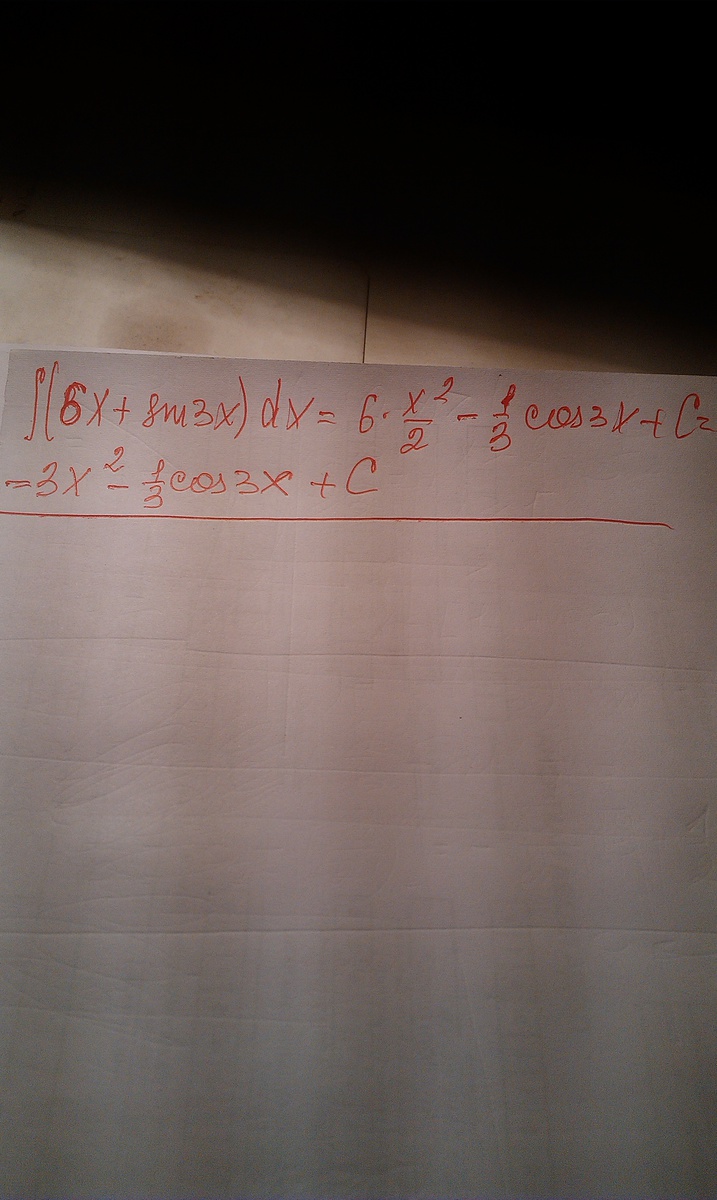 ∫(6x + sin3x) dx = 6 · x²/2 - 1/3 cos3x + C =
= 3x² - 1/3 cos3x + C